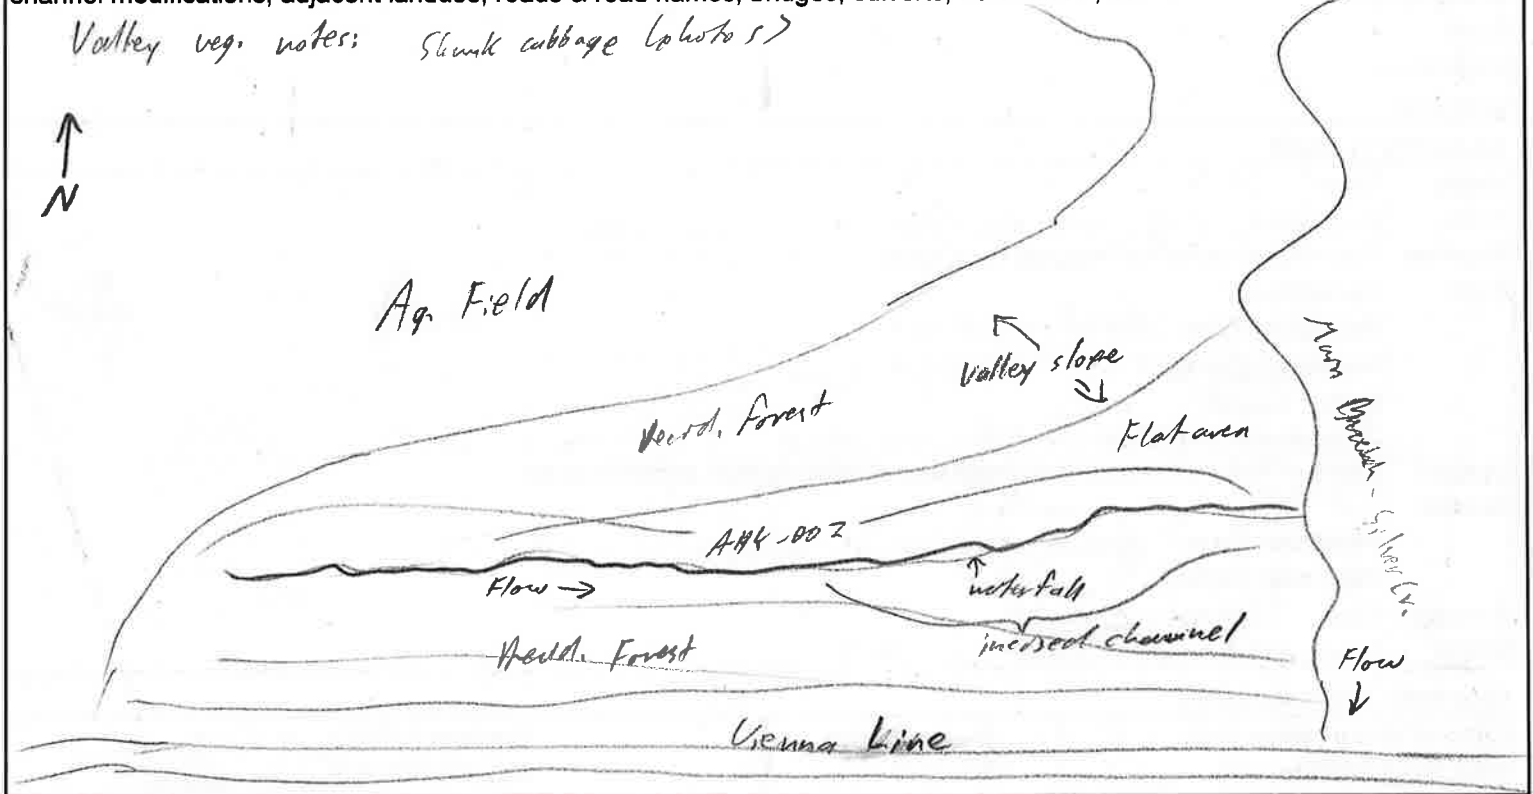 channel modifications, adjacent landuse, roads & road names, bridges, culverts,
Valley veg. notes: Skunk cabbage (photos)
N
Ag. Field
Valley slope
Decid. Forest
Flat area
Main Branch - Silver Cr.
Flow →
waterfall
incised channel
Decid. Forest
Flow
Vienna Line